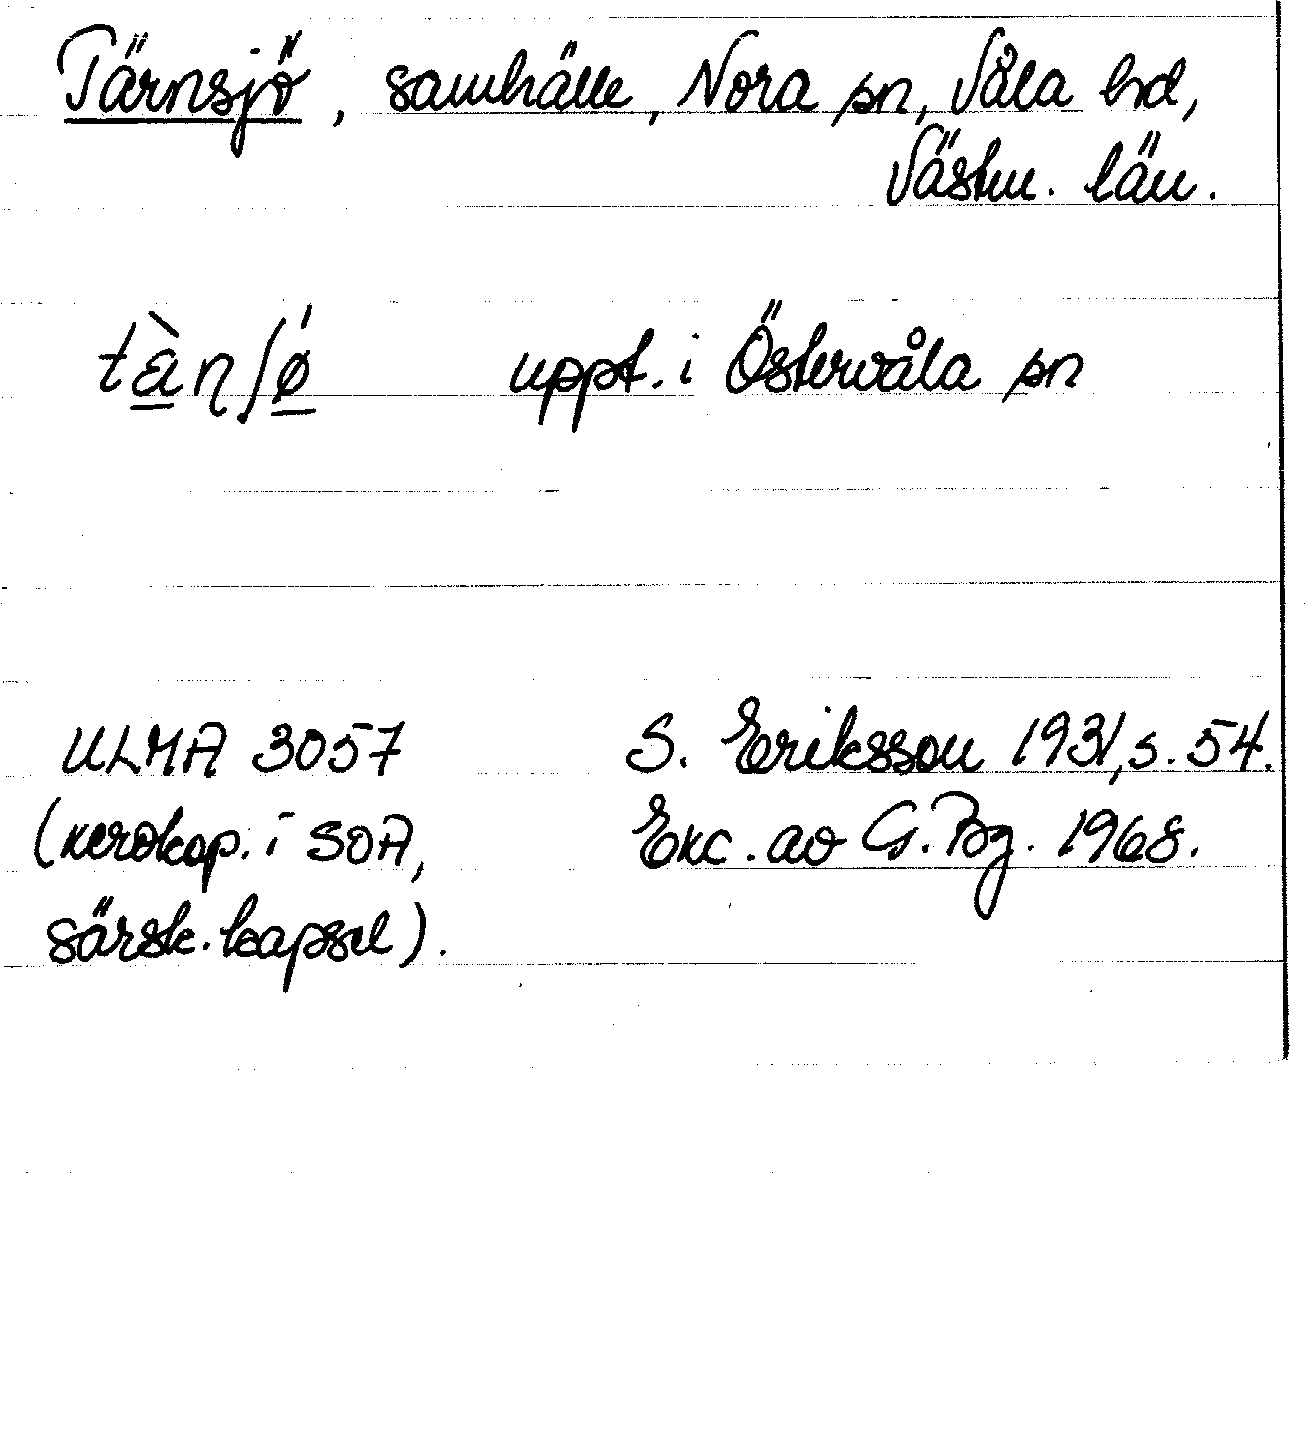 Tärnsjö, samhälle, Nora sn, Våla hd,
Västm. län.
tàṇʃǿ uppt. i Östervåla sn
ULMA 3057 S. Eriksson 1931, s. 54.
(xerokop. i SOA, Exc. av G. Bg. 1968.
särsk. kapsel).